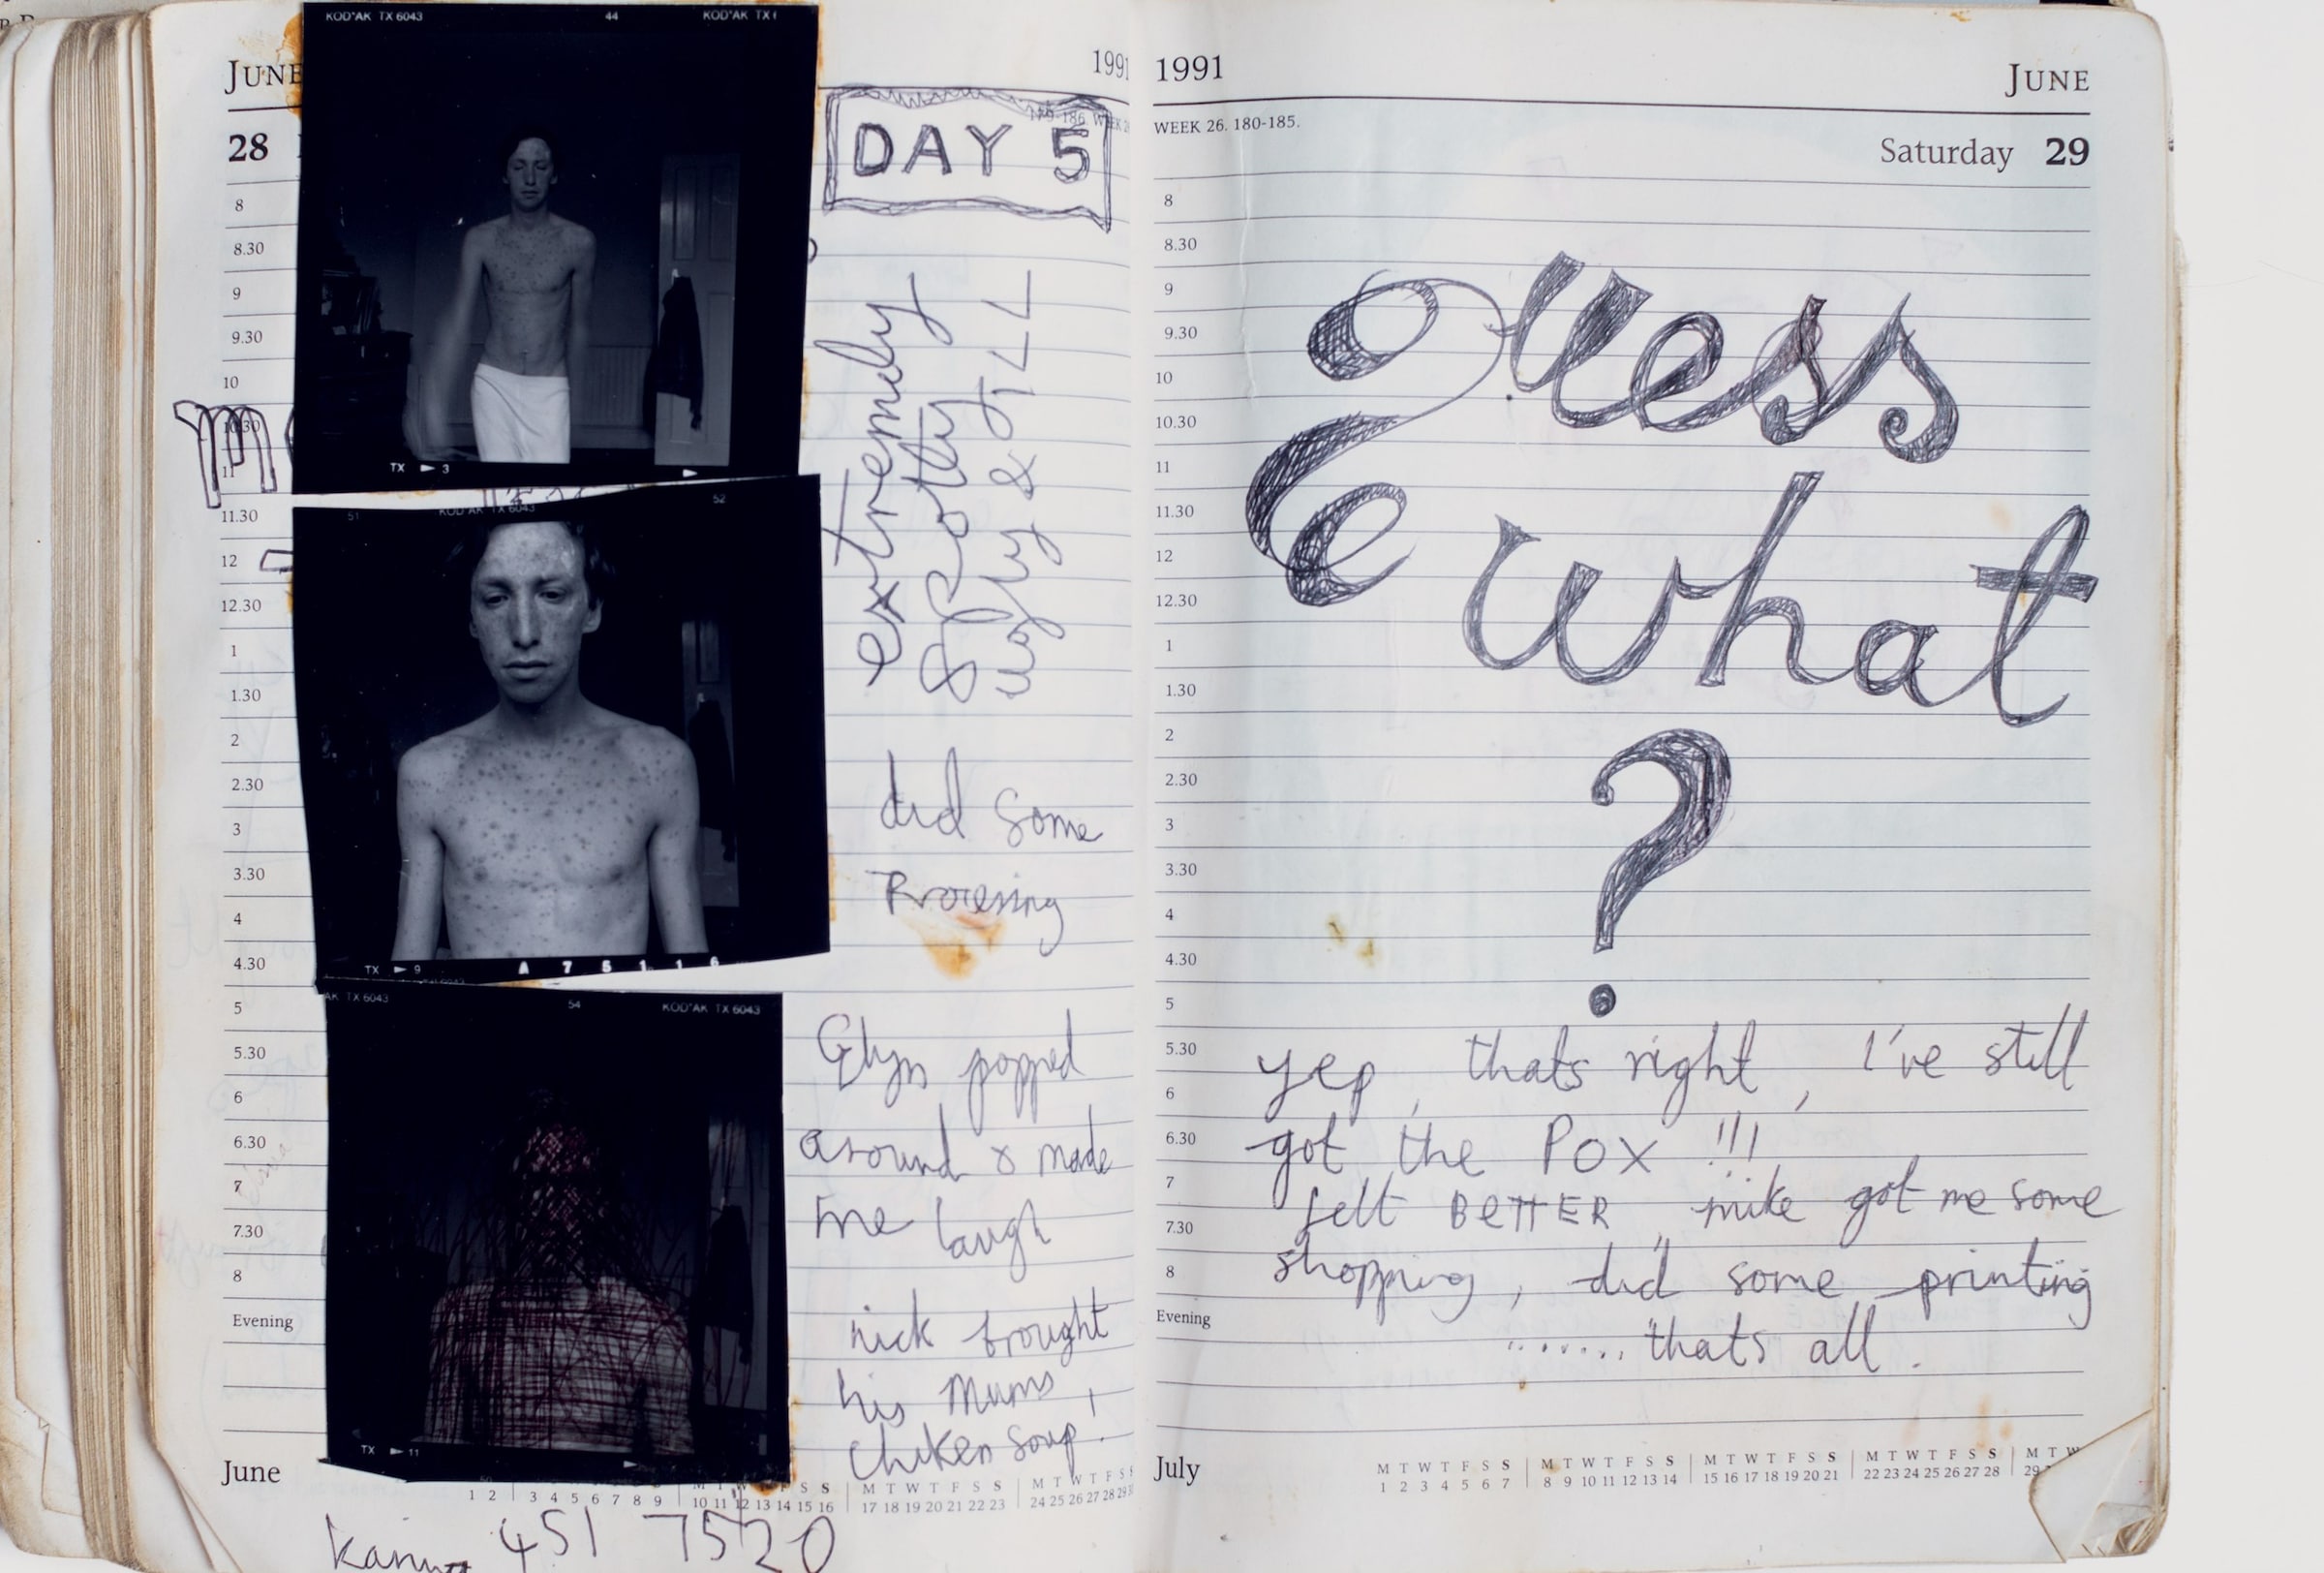 JUNE
1991
28
DAY 5
KODAK TX 6043
44
KODAK TX
TX 3
extremely
spotty
ugly & ILL
51
KODAK TX 6043
52
TX 9
A 7 5 1 1 6
did some
Processing
AK TX 6043
54
KODAK TX 6043
TX 11
Glyn popped
around & made
me laugh
nick brought
his Mums
chiken soup!
8
8.30
9
9.30
10
10.30
11
11.30
12
12.30
1
1.30
2
2.30
3
3.30
4
4.30
5
5.30
6
6.30
7
7.30
8
Evening
June
M T W T F S S
1 2
3 4 5 6 7 8 9
10 11 12 13 14 15 16
M T W T F S S
17 18 19 20 21 22 23
M T W T F S S
24 25 26 27 28 29 30
451 7520
1991
JUNE
WEEK 26. 180-185.
Saturday 29
8
8.30
9
9.30
10
10.30
11
11.30
12
12.30
1
1.30
2
2.30
3
3.30
4
4.30
5
5.30
6
6.30
7
7.30
8
Evening
guess
what
?
yep, thats right, I've still
got the POX !!!
felt BETTER, mike got me some
shopping, did some printing
........thats all.
July
M T W T F S S
1 2 3 4 5 6 7
M T W T F S S
8 9 10 11 12 13 14
M T W T F S S
15 16 17 18 19 20 21
M T W T F S S
22 23 24 25 26 27 28
M T W
29